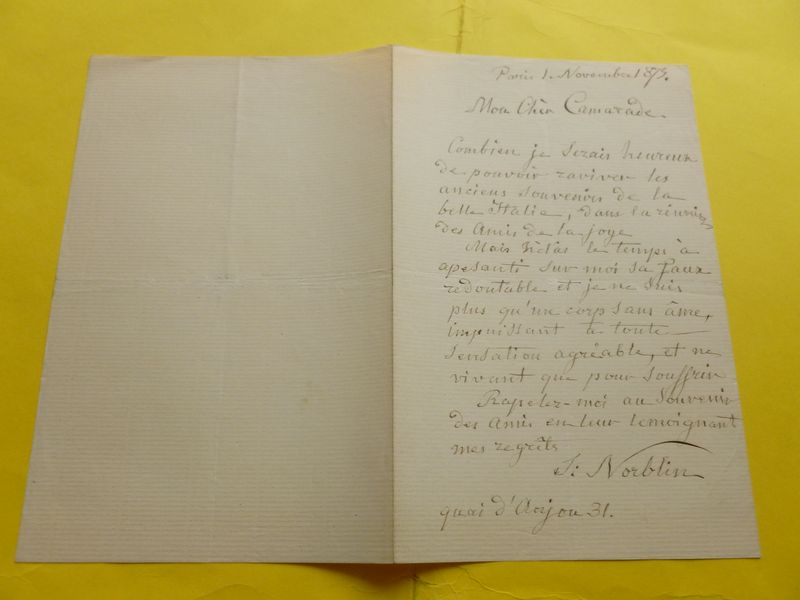 Paris 1. Novembre 1873.
Mon Chèr Camarade.
Combien je serais heureux
de pouvoir raviver les
anciens souvenirs de la
belle Italie, dans la réunion
des Amis de la joye
Mais hélas le temps à
apesanti sur moi sa faux
redoutable et je ne suis
plus qu'un corp sans âme,
impuissant à toute
sensation agréable, et ne
vivant que pour souffrir
Rapelez-moi au Souvenir
des Amis en leur temoignant
mes regrèts
S: Norblin
quai d'Anjou 31.